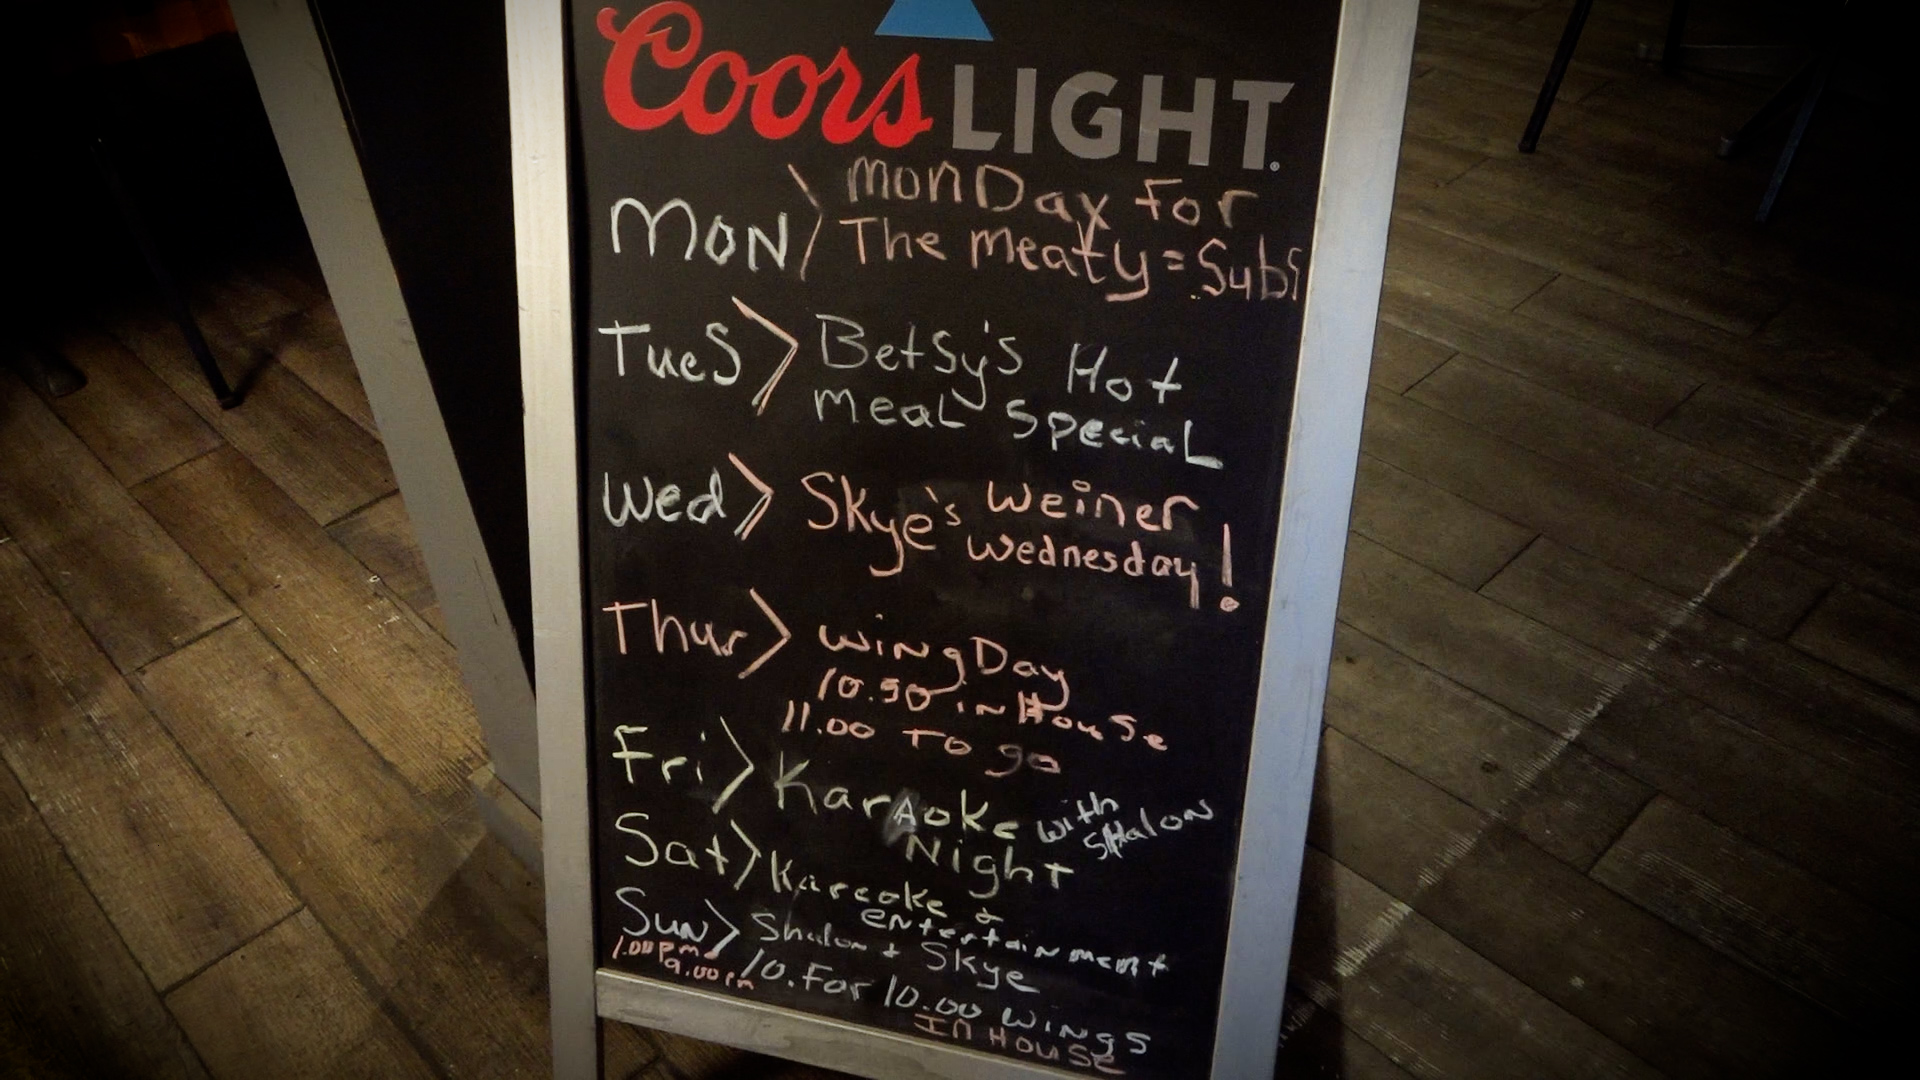 Coors LIGHT
MON > MonDay For
The meaty = Subs
TueS > Betsy's Hot
meaL SpeciaL
Wed > Skye's Weiner
Wednesday!
Thur > wingDay
10.50 in House
11.00 To go
Fri > KarAoke with Shalon
Night
Sat > Kareoke &
entertainment
Sun > Shalon + Skye
1.00 Pm
9.00 Pm
10. For 10.00 wings
In House